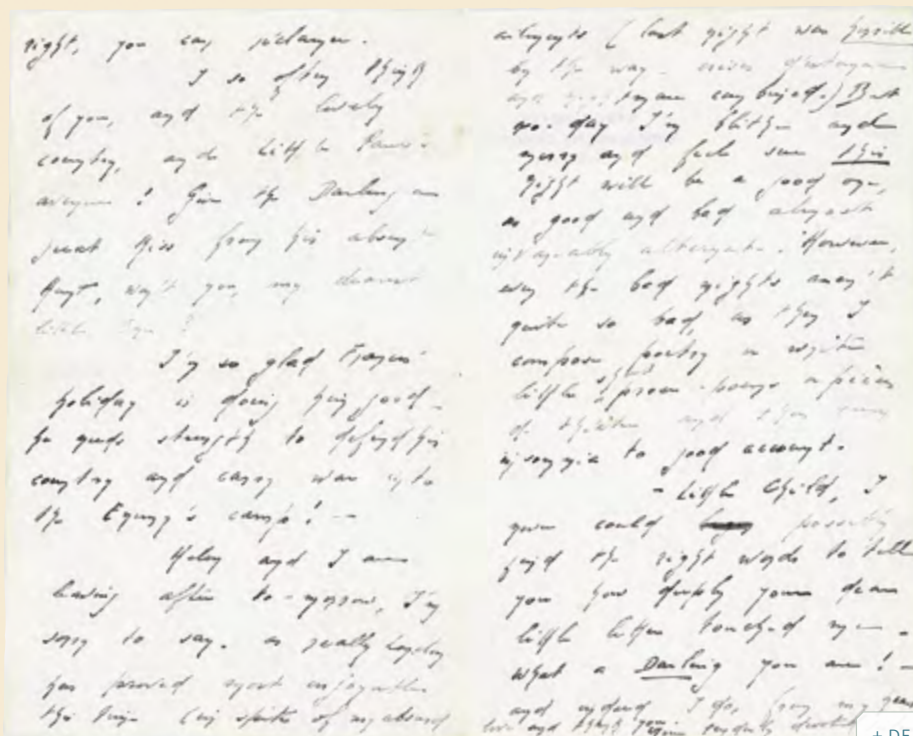 right, you can, I'm
I so often think
of you, and the lovely
country, and little
! Give the Darling a
great kiss from his absent
Aunt, won't you, my dearest
little
I'm so glad
holiday is doing him good –
he needs strength to defend his
country and carry war into
the Enemy's camp! –
Helen and I are
leaving after to-morrow, I'm
sorry to say. as really London
has proved most enjoyable
this time (in spite of my absurd
(last night was horrible
by the way –
and combined.) But
to-day I'm blithe and
merry and feel sure this
night will be a good one,
as good and bad almost
invariably alternate. However,
even the bad nights aren't
quite so bad, as then I
compose poetry or write
little prose-poems
and thus turn
insomnia to good account.
– Little Child, I
never could possibly
find the right words to tell
you how deeply your dear
little letter touched me –
What a Darling you are! –
and indeed I do, from my heart
love and thank you
+ DE